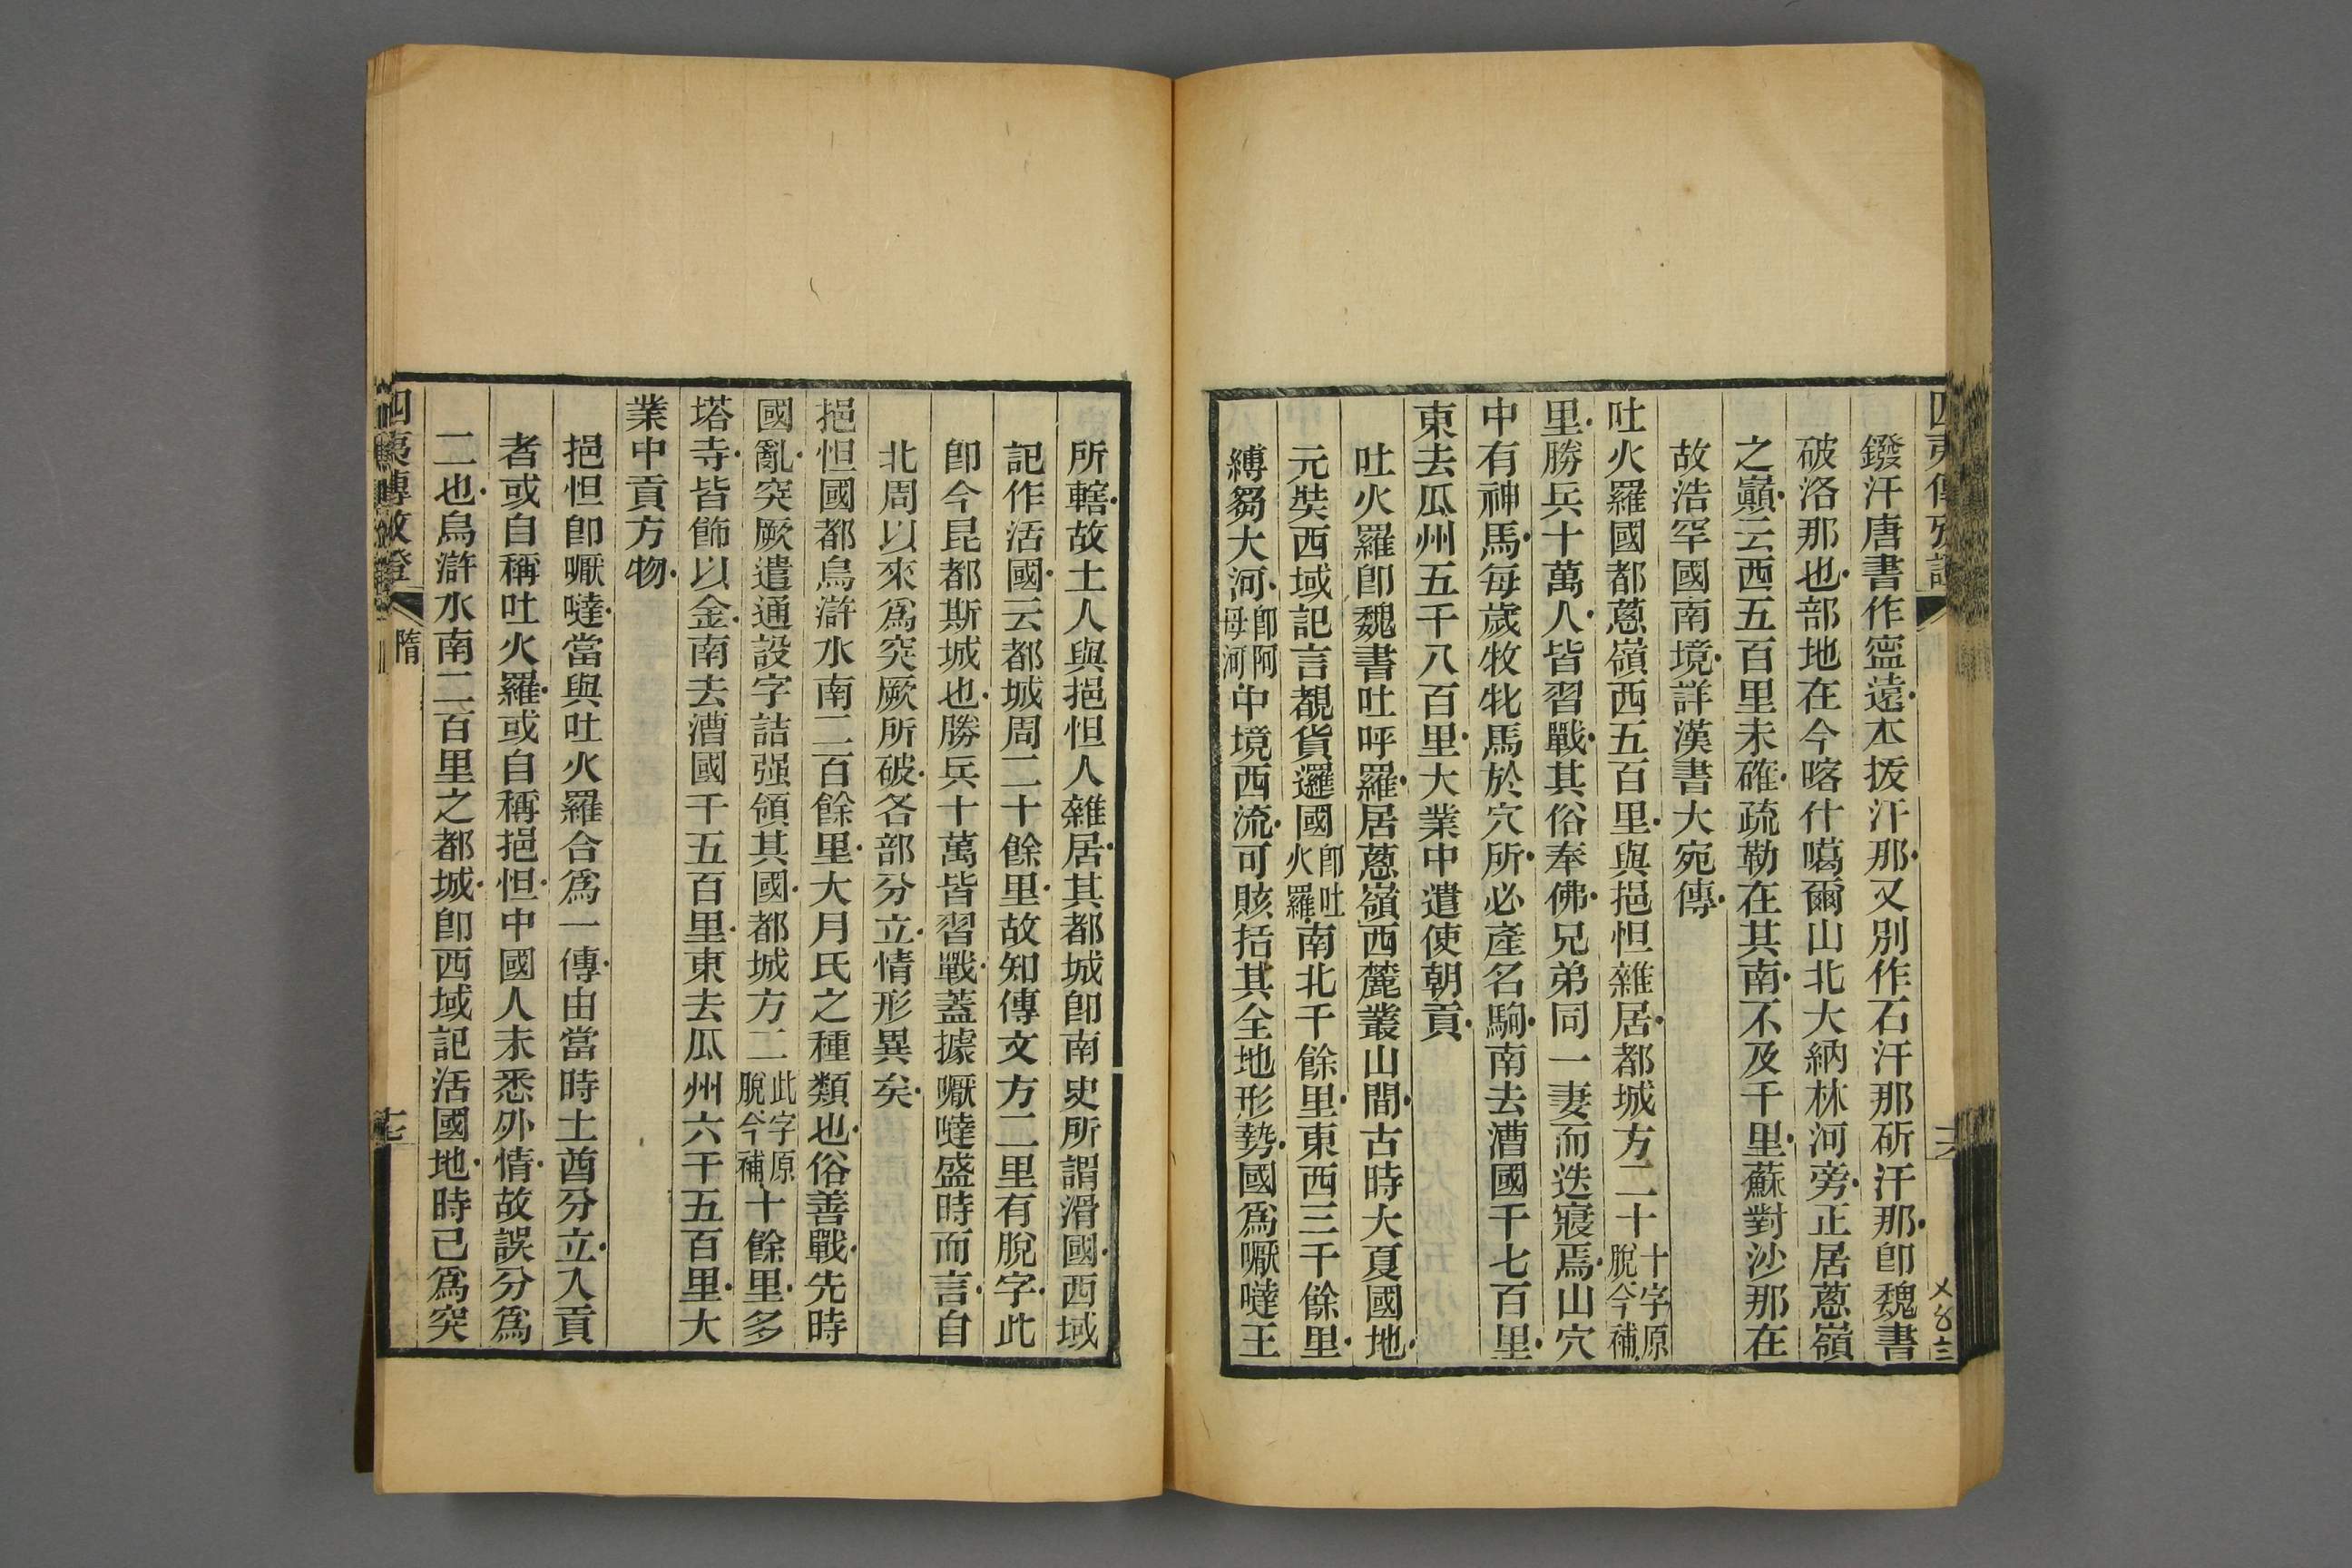 鏺汗唐書作寍遠本拔汗那又別作石汗那斫汗那卽魏書
破洛那也部地在今喀什噶爾山北大納林河旁正居蔥嶺
之巔云西五百里未確疏勒在其南不及千里蘇對沙那在
故浩罕國南境詳漢書大宛傳
吐火羅國都蔥嶺西五百里與挹怛雜居都城方二十十字原脫今補
里勝兵十萬人皆習戰其俗奉佛兄弟同一妻而迭寢焉山穴
中有神馬每歲牧牝馬於穴所必產名駒南去漕國千七百里
東去瓜州五千八百里大業中遣使朝貢
吐火羅卽魏書吐呼羅居蔥嶺西麓叢山間古時大夏國地
元奘西域記言覩貨邏國卽吐火羅南北千餘里東西三千餘里
縛芻大河卽阿母河中境西流可賅括其全地形勢國爲嚈噠王
所轄故土人與挹怛人雜居其都城卽南史所謂滑國西域
記作活國云都城周二十餘里故知傳文方二里有脫字此
卽今昆都斯城也勝兵十萬皆習戰蓋據嚈噠盛時而言自
北周以來爲突厥所破各部分立情形異矣
挹怛國都烏滸水南二百餘里大月氏之種類也俗善戰先時
國亂突厥遣通設字詰强領其國都城方二此字原脫今補十餘里多
塔寺皆飾以金南去漕國千五百里東去瓜州六千五百里大
業中貢方物
挹怛卽嚈噠當與吐火羅合爲一傳由當時土酋分立入貢
者或自稱吐火羅或自稱挹怛中國人未悉外情故誤分爲
二也烏滸水南二百里之都城卽西域記活國地時已爲突
四夷傳攷證
隋